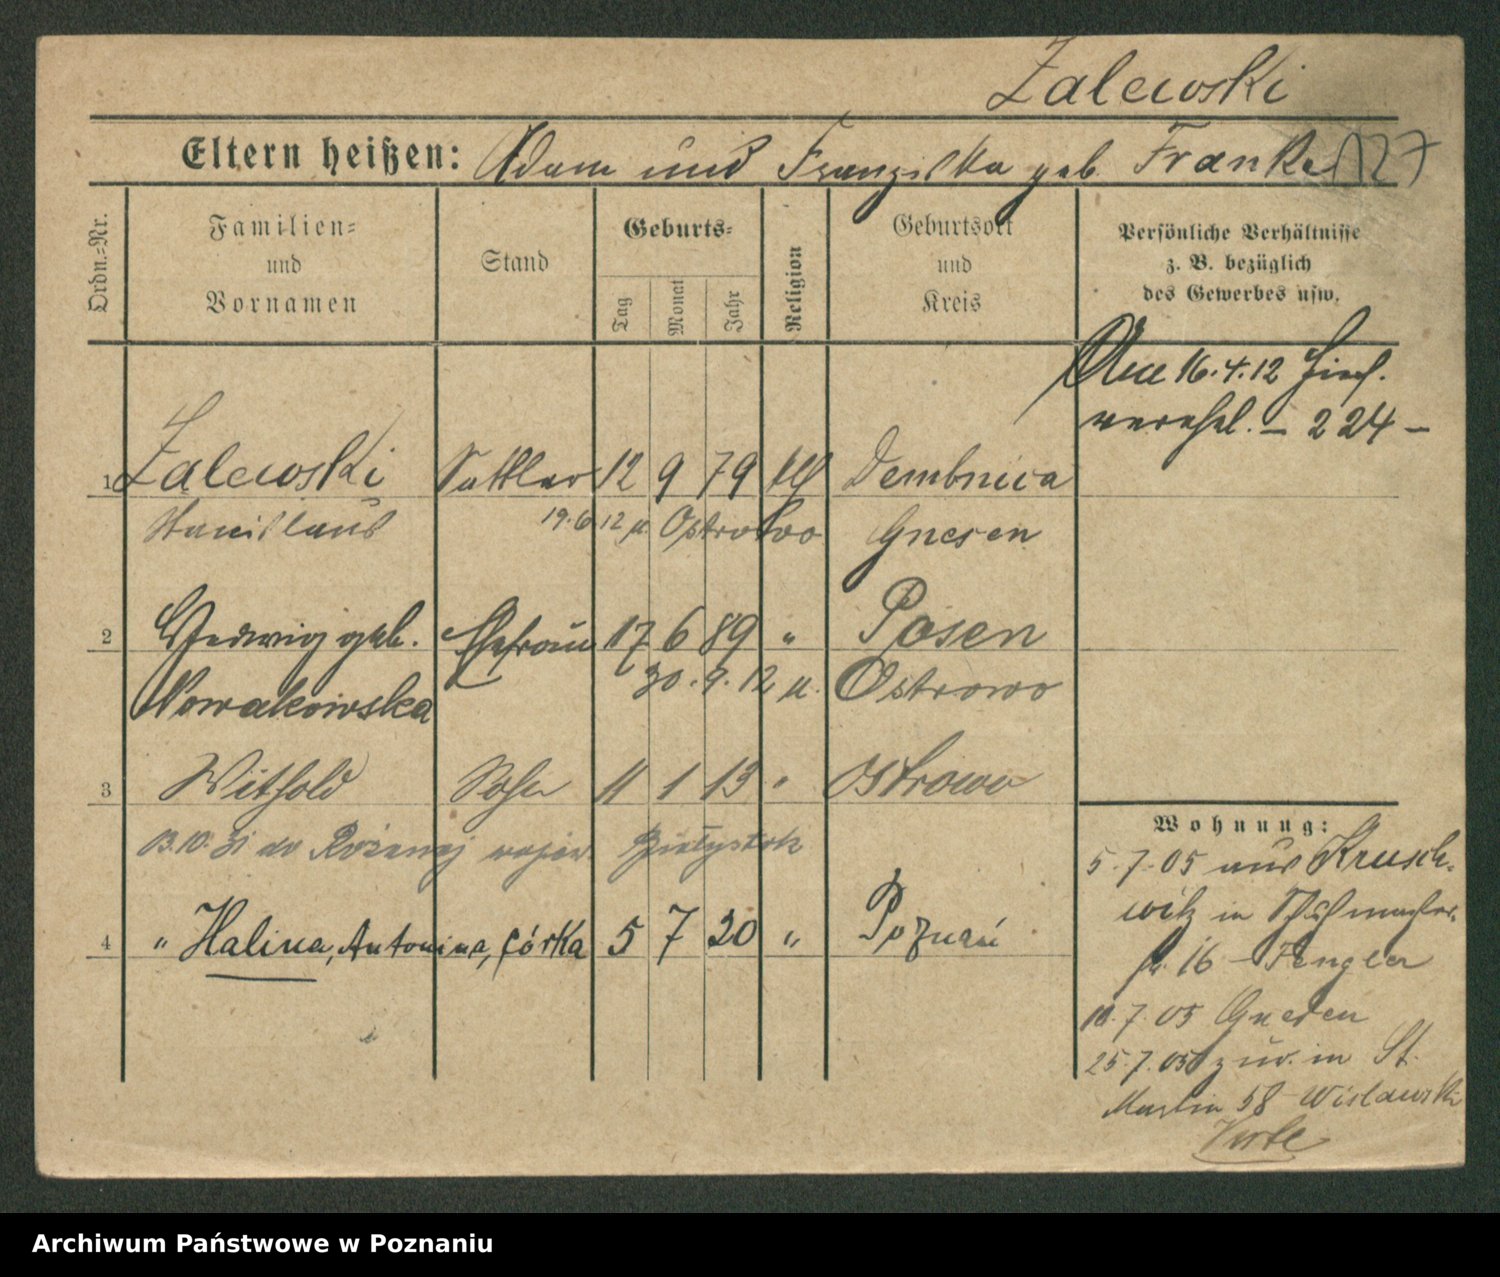 Zalewski
Eltern heißen: Adam und Franziska geb. Franke 127
Ordn.-Nr.
Familien-
und
Vornamen
Stand
Geburts-
Tag
Monat
Jahr
Religion
Geburtsort
und
Kreis
Persönliche Verhältnisse
z. B. bezüglich
des Gewerbes usw.
16.4.12 hier
verehel. – 224 –
1 Zalewski Sattler 12 9 79 Dembnica
Stanislaus 19.6.12 n. Ostrowo Gnesen
2 Hedwig geb. Ehefrau 17 6 89 " Posen
Nowakowska 30.9.12 n. Ostrowo
3 Withold Sohn 11 1 13 " Ostrowo
13.10.31 do Różanej wojew. Białystok
4 " Halina, Antonina, córka 5 7 20 " Poznań
Wohnung:
5.7.05 aus Krusch-
witz in Schuhmacher-
str. 16 – Fengler
10.7.05 Gnesen
25.7.05 zur. in St.
Martin 58 Wislawski
Verte
Archiwum Państwowe w Poznaniu